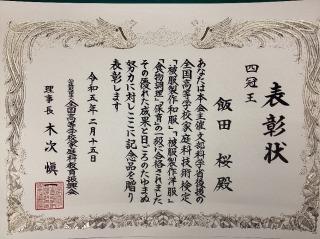 表彰状
四冠王
飯田 桜 殿
あなたは本会主催文部科学省後援の
全国高等学校家庭科技術検定
「被服製作和服」「被服製作洋服」
「食物調理」「保育」の一級に合格されました
その優れた成果と日ごろのたゆまぬ
努力に対しここに記念品を贈り
表彰します
令和五年二月十五日
公益財団法人 全国高等学校家庭科教育振興会
理事長 木次 愼一